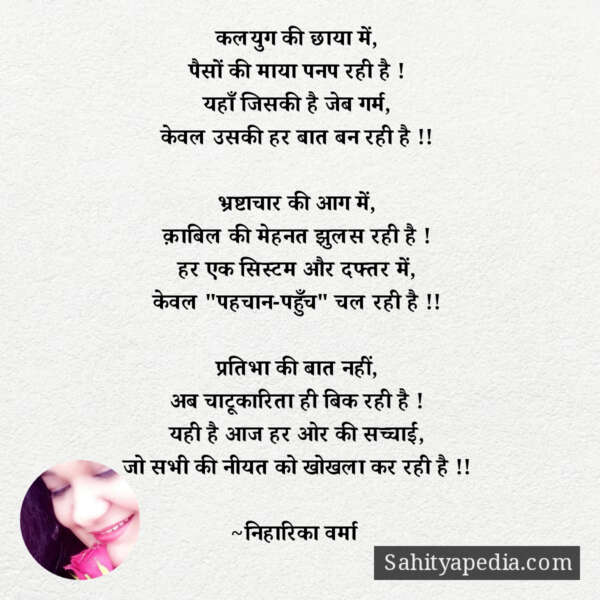 कलयुग की छाया में,
पैसों की माया पनप रही है !
यहाँ जिसकी है जेब गर्म,
केवल उसकी हर बात बन रही है !!
भ्रष्टाचार की आग में,
क़ाबिल की मेहनत झुलस रही है !
हर एक सिस्टम और दफ्तर में,
केवल "पहचान-पहुँच" चल रही है !!
प्रतिभा की बात नहीं,
अब चाटूकारिता ही बिक रही है !
यही है आज हर ओर की सच्चाई,
जो सभी की नीयत को खोखला कर रही है !!
~निहारिका वर्मा
Sahityapedia.com